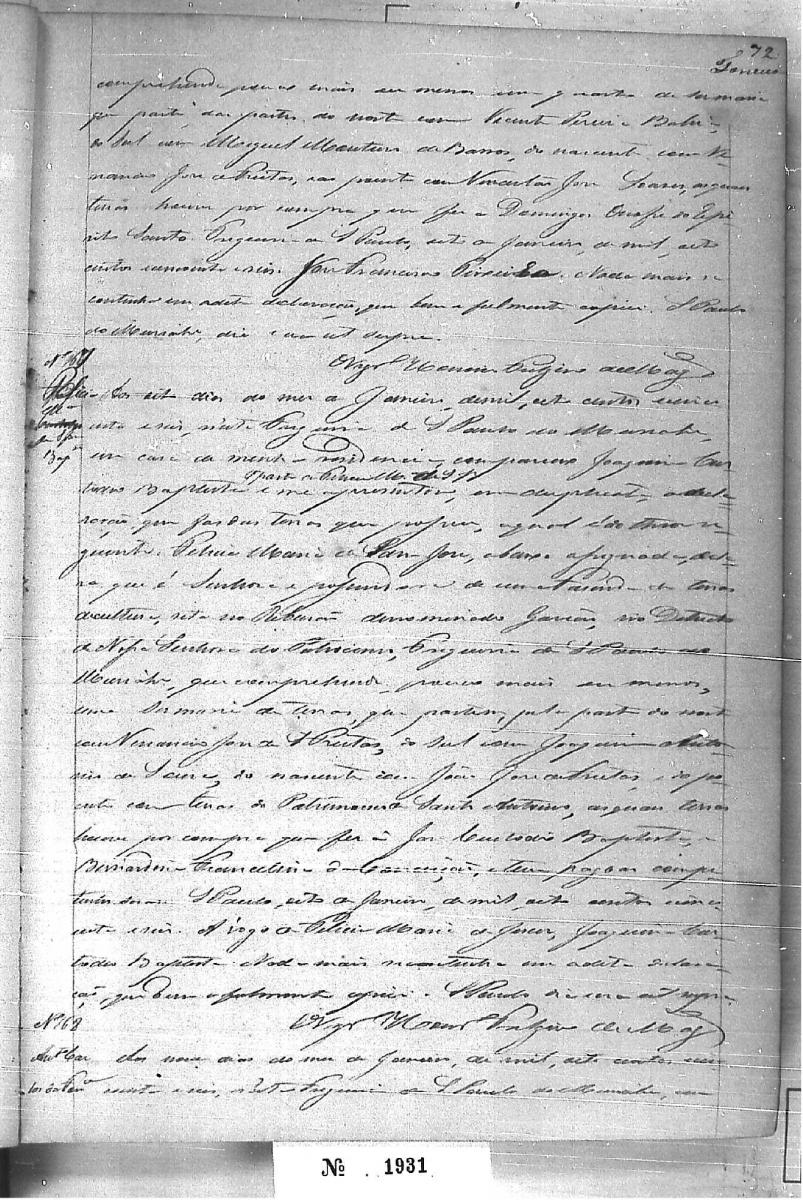 72
comprehende pouco mais ou menos um quarto de sesmaria
que parte das partes do norte com Vicente Pereira
do Sul com Miguel Monteiro de Barros, do nascente com Ve-
nancio Jose de Freitas, e ao poente com Jose Soares, as quaes
terras houve por compra que fez a Domingos do Espi-
rito Santo. Freguesia de S Paulo, oito de Janeiro, de mil, oito
centos cincoenta e seis. Jose Francisco Pereira. Nada mais se
continha em a dita declaração, que bem e fielmente copiei. S Paulo
do Muriahe, dia e era ut supra.
Nº 67
Aos oito dias do mez de Janeiro, de mil, oito centos cinco-
enta e seis, n'esta Freguesia de S Paulo do Muriahe,
em casa de minha residencia, compareceo Joaquim Cus-
todio Baptista e me apresentou, em duplicata, a decla-
ração, que faz das terras que possue, a qual é do theor se-
guinte. Felicia Maria de São Jose, abaixo assignada, decla-
ra que é Senhora e possuidora de uma fazenda de terras
de cultura, sita no Ribeirão denominado Gavião, no Districto
de Nossa Senhora do Patrocinio, Freguesia de S Paulo do
Muriahe, que comprehende, pouco mais ou menos,
uma Sesmaria de terras, que partem, pela parte do norte
com Venancio Jose de Freitas, do Sul com Joaquim Anto-
nio de do nascente com João Jose de Freitas, e do po-
ente com terras do Patrimonio de Santo Antonio, as quaes terras
houve por compra que fez á Jose Custodio Baptista, e
Bernardina Francelina da Conceição, e
S Paulo, oito de Janeiro, de mil, oito centos cinco-
enta e seis. A rogo de Felicia Maria de Joaquim Cus-
todio Baptista. Nada mais se continha em a dita declara-
ção, que bem e fielmente copiei. S Paulo dia e era ut supra.
Nº 68
Aos nove dias do mez de Janeiro, de mil, oito centos cin-
coenta e seis, n'esta Freguesia de S Paulo do Muriahe, em
Nº 1931